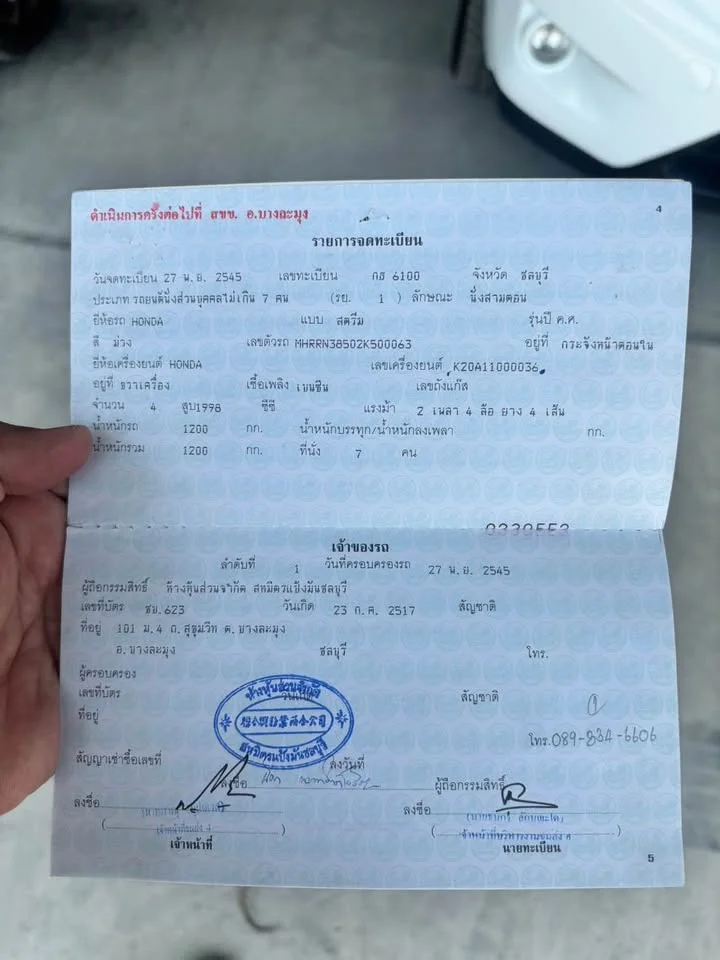 ดำเนินการครั้งต่อไปที่ สขข. อ.บางละมุง
4
รายการจดทะเบียน
วันจดทะเบียน 27 พ.ย. 2545 เลขทะเบียน กธ 6100 จังหวัด ชลบุรี
ประเภท รถยนต์นั่งส่วนบุคคลไม่เกิน 7 คน (รย. 1 ) ลักษณะ นั่งสามตอน
ยี่ห้อรถ HONDA แบบ สตรีม รุ่นปี ค.ศ.
สี ม่วง เลขตัวรถ MHRRN38502K500063 อยู่ที่ กระจังหน้าตอนใน
ยี่ห้อเครื่องยนต์ HONDA เลขเครื่องยนต์ K20A11000036
อยู่ที่ ขวาเครื่อง เชื้อเพลิง เบนซิน เลขถังแก๊ส
จำนวน 4 สูบ1998 ซีซี แรงม้า 2 เพลา 4 ล้อ ยาง 4 เส้น
น้ำหนักรถ 1200 กก. น้ำหนักบรรทุก/น้ำหนักลงเพลา กก.
น้ำหนักรวม 1200 กก. ที่นั่ง 7 คน
เจ้าของรถ
ลำดับที่ 1 วันที่ครอบครองรถ 27 พ.ย. 2545
ผู้ถือกรรมสิทธิ์ ห้างหุ้นส่วนจำกัด สหมิตรแป้งมันชลบุรี
เลขที่บัตร ชบ.623 วันเกิด 23 ก.ค. 2517 สัญชาติ
ที่อยู่ 101 ม.4 ถ.สุขุมวิท ต.บางละมุง
อ.บางละมุง ชลบุรี โทร.
ผู้ครอบครอง
เลขที่บัตร วันเกิด สัญชาติ
ที่อยู่
ห้างหุ้นส่วนจำกัด
สหมิตรแป้งมันชลบุรี
โทร.089-834-6606
สัญญาเช่าซื้อเลขที่ ลงวันที่
ลงชื่อ ผู้ถือกรรมสิทธิ์
ลงชื่อ ลงชื่อ
เจ้าหน้าที่ นายทะเบียน
5